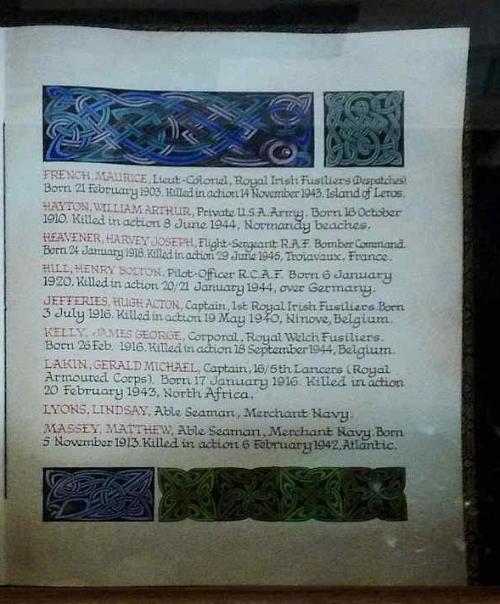 FRENCH, MAURICE, Lieut-Colonel, Royal Irish Fusiliers (Despatches)
Born 21 February 1903. Killed in action 14 November 1943, Island of Leros.
HAYTON, WILLIAM ARTHUR, Private U.S.A. Army. Born 16 October
1910. Killed in action 8 June 1944, Normandy beaches.
HEAVENER, HARVEY JOSEPH, Flight-Sergeant R.A.F. Bomber Command.
Born 24 January 1918. Killed in action 29 June 1945, Troiavaux, France.
HILL, HENRY BOLTON, Pilot-Officer R.C.A.F. Born 6 January
1920. Killed in action 20/21 January 1944, over Germany.
JEFFERIES, HUGH ACTON, Captain, 1st Royal Irish Fusiliers. Born
3 July 1916. Killed in action 19 May 1940, Ninove, Belgium.
KELLY, JAMES GEORGE, Corporal, Royal Welch Fusiliers.
Born 25 Feb. 1916. Killed in action 18 September 1944, Belgium.
LAKIN, GERALD MICHAEL, Captain, 16/5th Lancers (Royal
Armoured Corps). Born 17 January 1916. Killed in action
20 February 1943, North Africa.
LYONS, LINDSAY, Able Seaman, Merchant Navy.
MASSEY, MATTHEW, Able Seaman, Merchant Navy. Born
5 November 1913. Killed in action 6 February 1942, Atlantic.